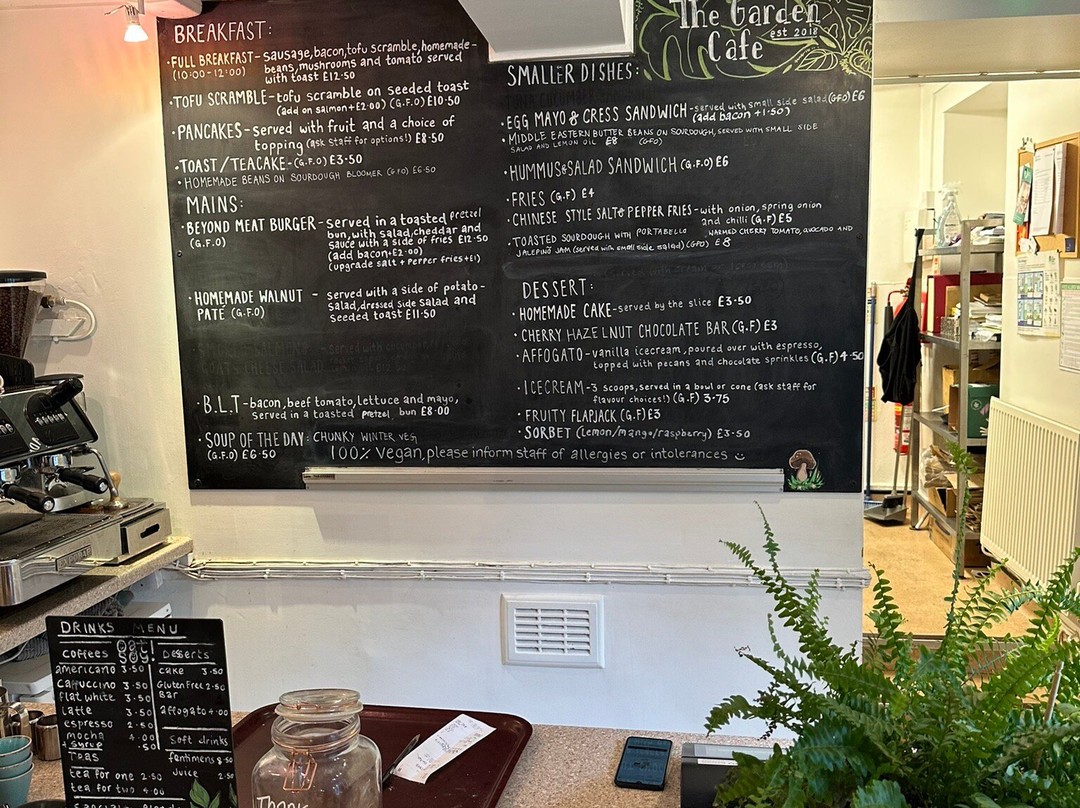 BREAKFAST:
·FULL BREAKFAST- sausage, bacon, tofu scramble, homemade-
(10:00-12:00) beans, mushrooms and tomato served
with toast £12·50
·TOFU SCRAMBLE- tofu scramble on seeded toast
(add on salmon +£2·00) (G.F.O) £10·50
·PANCAKES- served with fruit and a choice of
topping (ask staff for options!) £8·50
·TOAST/TEACAKE- (G.F.O) £3·50
·HOMEMADE BEANS ON SOURDOUGH BLOOMER (GFO) £6·50
MAINS:
·BEYOND MEAT BURGER- served in a toasted pretzel
(G.F.O) bun, with salad, cheddar and
sauce with a side of fries £12·50
(add bacon +£2·00)
(upgrade salt + pepper fries +£1)
·HOMEMADE WALNUT - served with a side of potato-
PATE (G.F.O) salad, dressed side salad and
seeded toast £11·50
·B.L.T- bacon, beef tomato, lettuce and mayo,
served in a toasted pretzel bun £8·00
·SOUP OF THE DAY: CHUNKY WINTER VEG
(G.F.O) £6·50
The Garden
Cafe est 2018
SMALLER DISHES:
·EGG MAYO & CRESS SANDWICH- served with small side salad (GFO) £6
(add bacon +1·50)
·MIDDLE EASTERN BUTTER BEANS ON SOURDOUGH, SERVED WITH SMALL SIDE
SALAD AND LEMON OIL £8 (GFO)
·HUMMUS & SALAD SANDWICH (G.F.O) £6
·FRIES (G.F) £4
·CHINESE STYLE SALT & PEPPER FRIES- with onion, spring onion
and chilli (G.F) £5
·TOASTED SOURDOUGH WITH PORTABELLO, WARMED CHERRY TOMATO, AVOCADO AND
JALEPIÑO JAM (served with small side salad) (GFO) £8
DESSERT:
·HOMEMADE CAKE- served by the slice £3·50
·CHERRY HAZELNUT CHOCOLATE BAR (G.F) £3
·AFFOGATO- vanilla icecream, poured over with espresso,
topped with pecans and chocolate sprinkles (G.F) 4·50
·ICECREAM- 3 scoops, served in a bowl or cone (ask staff for
flavour choices!) (G.F) 3·75
·FRUITY FLAPJACK (G.F) £3
·SORBET (Lemon/mango/raspberry) £3·50
100% Vegan, please inform staff of allergies or intolerances
DRINKS MENU
coffees
americano 3·50
cappuccino 3·50
flat white 3·50
latte 3·50
espresso 2·50
mocha 4·00
+ syrup ·50
Teas
tea for one 2·50
tea for two 4·00
Desserts
cake 3·50
Gluten Free 2·50
Bar
affogato 4·00
Soft drinks
Juice
Thank